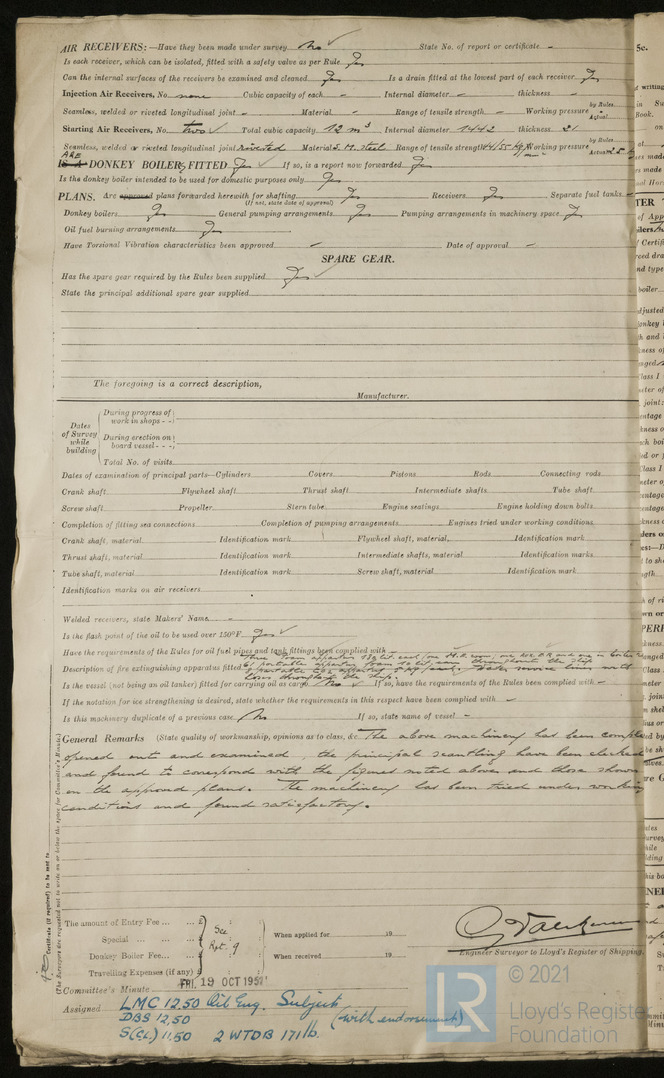 AIR RECEIVERS:—Have they been made under survey No State No. of report or certificate –
Is each receiver, which can be isolated, fitted with a safety valve as per Rule Yes
Can the internal surfaces of the receivers be examined and cleaned Yes Is a drain fitted at the lowest part of each receiver Yes
Injection Air Receivers, No. none Cubic capacity of each – Internal diameter – thickness –
by Rules
Seamless, welded or riveted longitudinal joint – Material – Range of tensile strength – Working pressure Actual
Starting Air Receivers, No. two Total cubic capacity 12 m³ Internal diameter 1442 thickness 21
by Rules
Seamless, welded or riveted longitudinal joint riveted Material S.M. steel Range of tensile strength 44/55 kg/mm² Working pressure Actual 25 k
ARE
IS A DONKEY BOILERS FITTED Yes If so, is a report now forwarded Yes
Is the donkey boiler intended to be used for domestic purposes only Yes
PLANS. Are approved plans forwarded herewith for shafting Yes Receivers Yes Separate fuel tanks –
(If not, state date of approval)
Donkey boilers Yes General pumping arrangements Yes Pumping arrangements in machinery space Yes
Oil fuel burning arrangements Yes
Have Torsional Vibration characteristics been approved – Date of approval –
SPARE GEAR.
Has the spare gear required by the Rules been supplied Yes
State the principal additional spare gear supplied
The foregoing is a correct description,
Manufacturer.
Dates of Survey while building
During progress of work in shops - -
During erection on board vessel - - -
Total No. of visits
Dates of examination of principal parts—Cylinders Covers Pistons Rods Connecting rods
Crank shaft Flywheel shaft Thrust shaft Intermediate shafts Tube shaft
Screw shaft Propeller Stern tube Engine seatings Engine holding down bolts
Completion of fitting sea connections Completion of pumping arrangements Engines tried under working conditions
Crank shaft, material Identification mark Flywheel shaft, material, Identification mark
Thrust shaft, material Identification mark Intermediate shafts, material Identification marks
Tube shaft, material Identification mark Screw shaft, material Identification mark
Identification marks on air receivers
Welded receivers, state Makers' Name –
Is the flash point of the oil to be used over 150°F. Yes
Have the requirements of the Rules for oil fuel pipes and tank fittings been complied with –
Description of fire extinguishing apparatus fitted
Is the vessel (not being an oil tanker) fitted for carrying oil as cargo No If so, have the requirements of the Rules been complied with –
If the notation for ice strengthening is desired, state whether the requirements in this respect have been complied with –
Is this machinery duplicate of a previous case No If so, state name of vessel –
General Remarks (State quality of workmanship, opinions as to class, &c. The above machinery has been
opened out and examined, the principal scantling have been checked
and found to correspond with the figures noted above and those shown
on the approved plans. The machinery has been tried under working
conditions and found satisfactory.
The amount of Entry Fee ... ... £
Special ... ... £ See Rpt. 9 When applied for 19
Donkey Boiler Fee ... ... £ When received 19
Travelling Expenses (if any) £
Engineer Surveyor to Lloyd's Register of Shipping.
Committee's Minute FRI. 19 OCT 1951
Assigned LMC 12,50 Oil Eng. Subject
DBS 12,50 (with endorsement)
S(CL) 11.50 2 WTDB 171 lb.
Certificate (if required) to be sent to
(The Surveyors are requested not to write on or below the space for Committee's Minute.)
LR © 2021
Lloyd's Register
Foundation